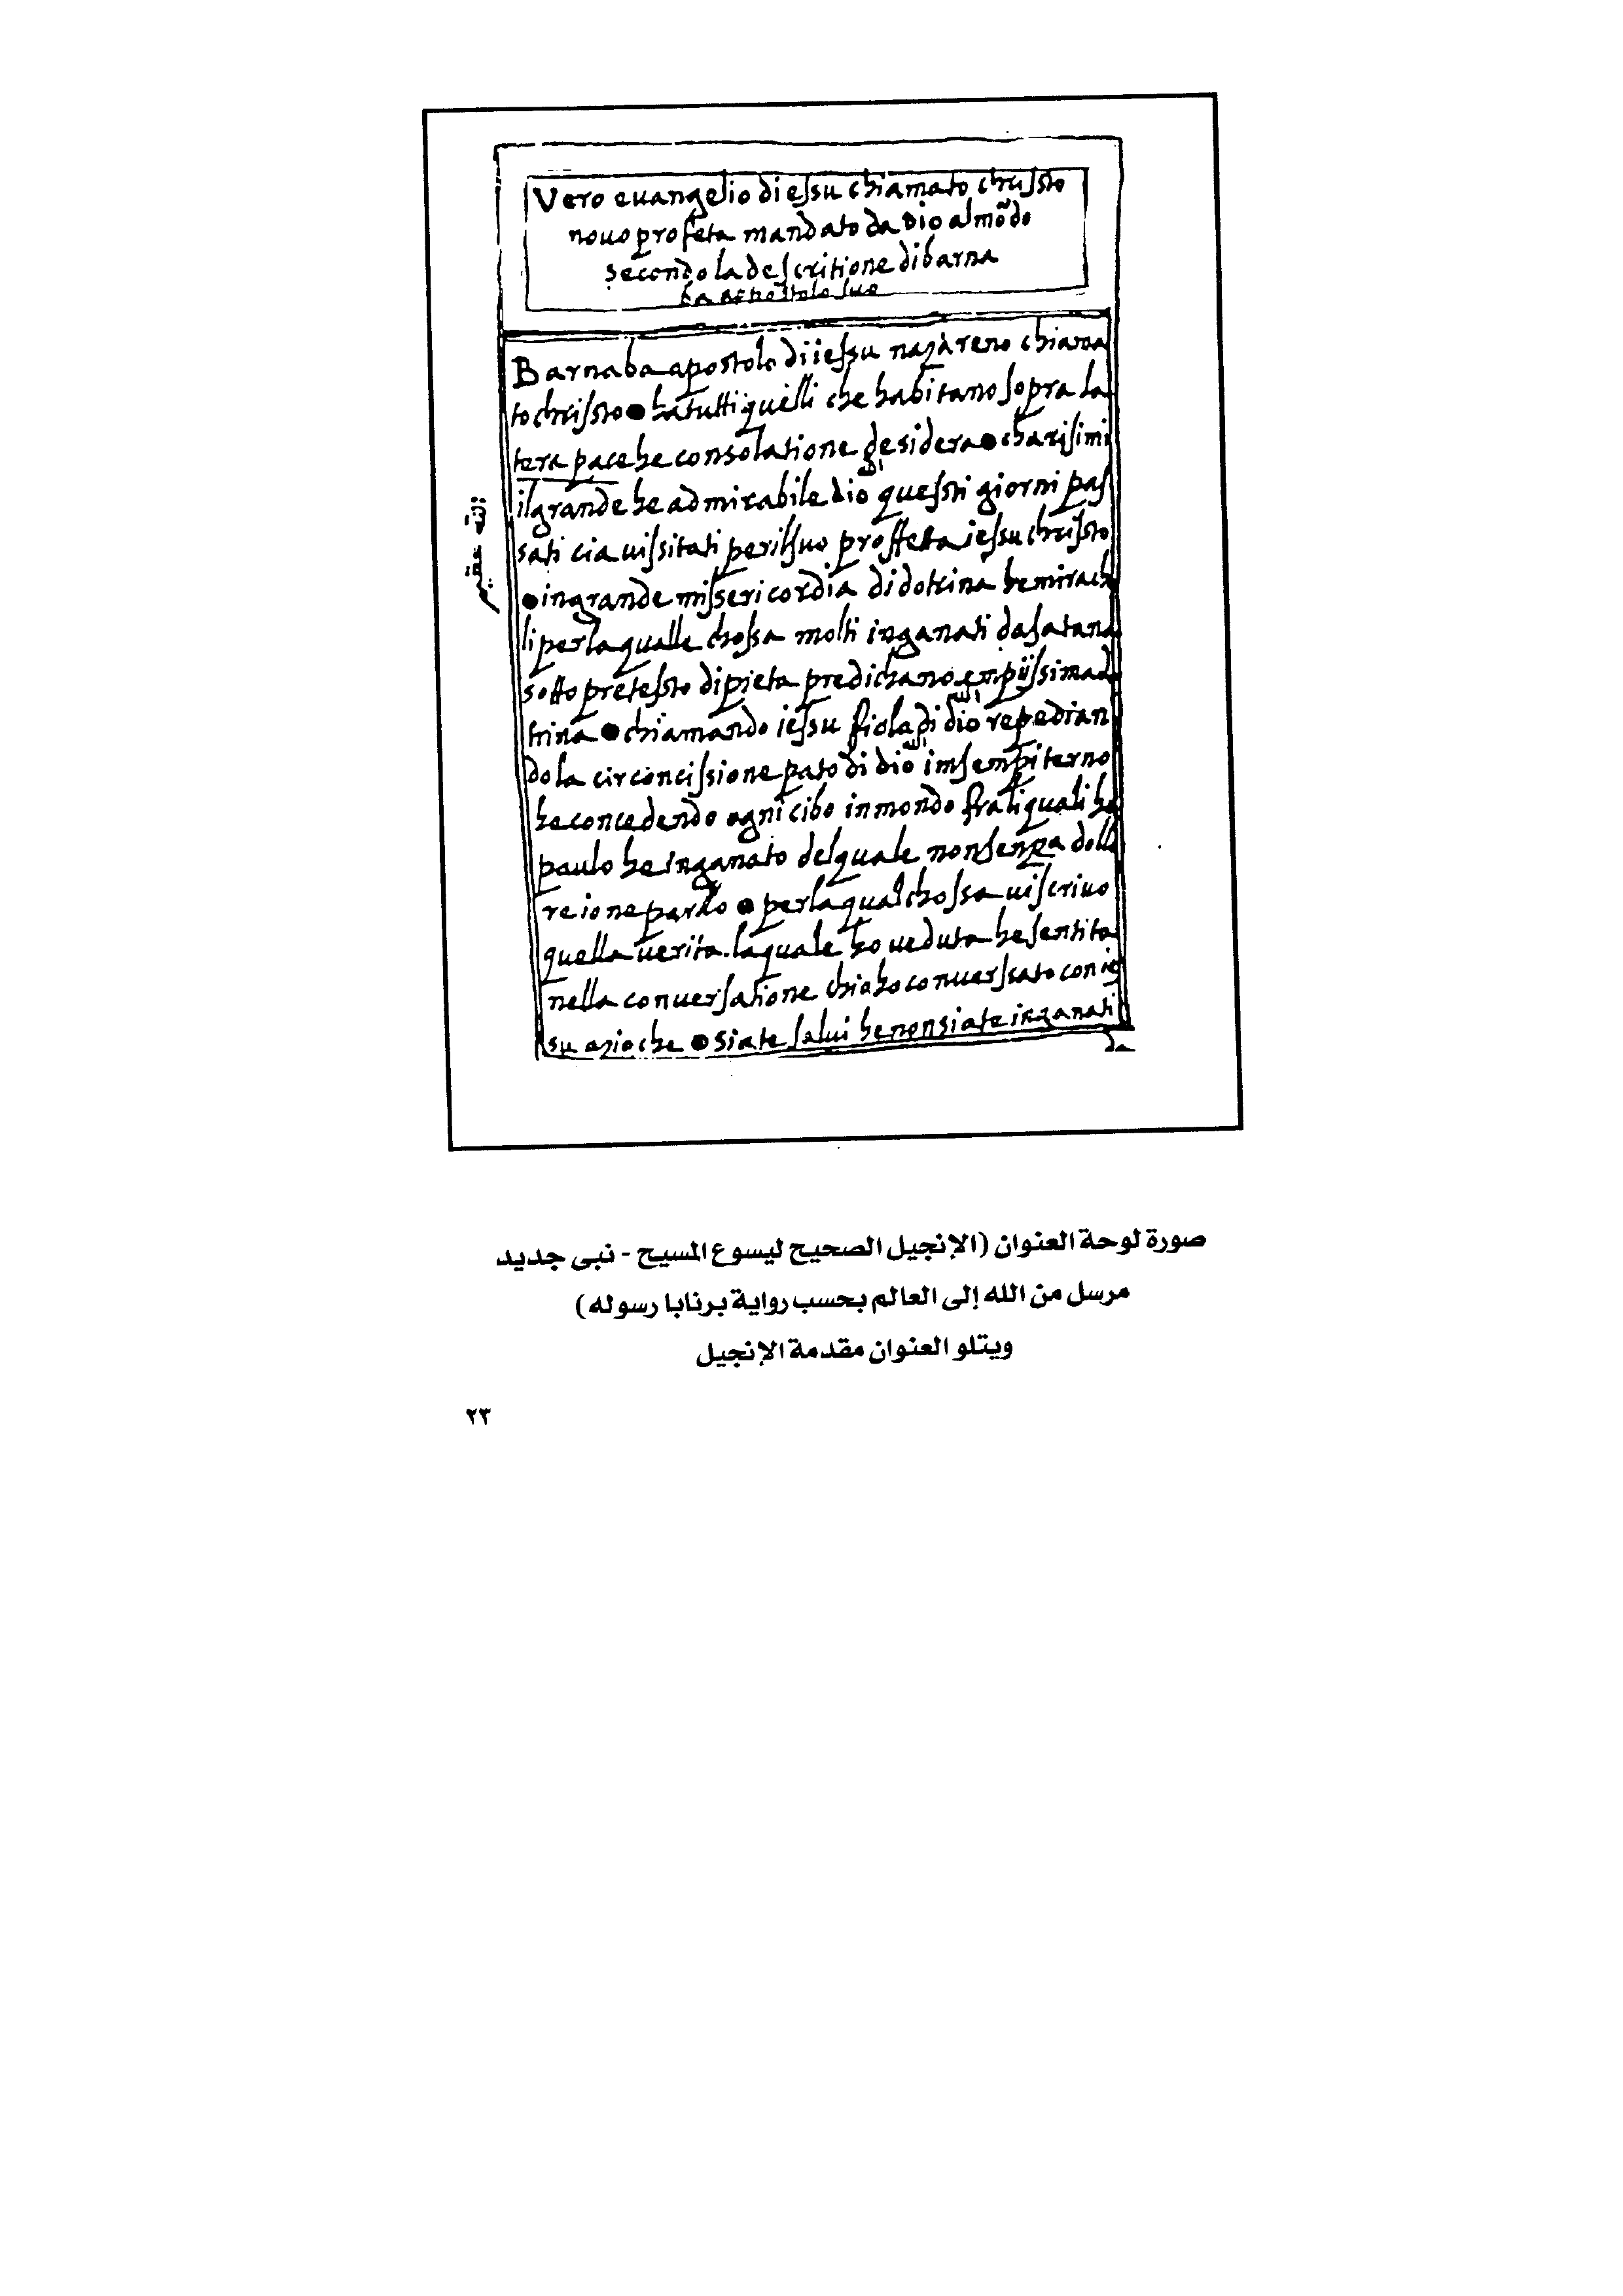 Vero euangelio di iessu chiamato chrissto
nouo profeta mandato da Dio al mõdo
secondo la descritione di barna
ba apostolo suo
Barnaba apostolo di iessu nazàreno chiama
to chrissto ha tutti quelli che habitano sopra la
tera pace he consolatione desidera charisimi
il grande he admirabile dio questi giorni pas
الله
sati cia uissitati per il suo proffetta iessu chrissto
in grande misséricordia di dotrina he mirach
li per la qualle chossa molti inganati da satana
sotto pretessto di pieta predichano empijssima do
trina chiamando iessu fiolo di dio repedian
الله
do la circoncissione pato di dio im sempiterno
الله
he concedendo ogni cibo in mondo fra li quali he
paulo he inganato del quale non senza dollo
re io ne parlo per la qual chossa ui scriuo
quella uerita la quale ho ueduta he sentita
nella conuersatione chio ho conuerssato con ies
su azio che siate salui he non siate inganati
da
الله
صورة لوحة العنوان (الإنجيل الصحيح ليسوع المسيح - نبى جديد
مرسل من الله إلى العالم بحسب رواية برنابا رسوله)
ويتلو العنوان مقدمة الإنجيل
٢٣